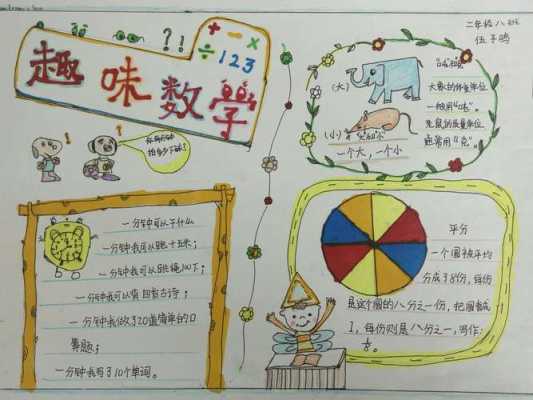 趣味数学
? !
+ - ×
÷ 1 2 3
二年级八班
(大)
大象的体重单位
一般用“吨”。
老鼠的质量单位
通常用“克”。
(小)
一个大，一个小
一分钟可以干什么
一分钟我可以跳十五米；
一分钟我可以跳绳100下；
一分钟我可以背四首古诗；
一分钟我做了20道简单的口
算题；
一分钟我写了10个单词。
平分
一个圆被平均
分成了8份，每份
是这个圆的八分之一份，把圆看成
1，每份则是八分之一，写作：
⅛。